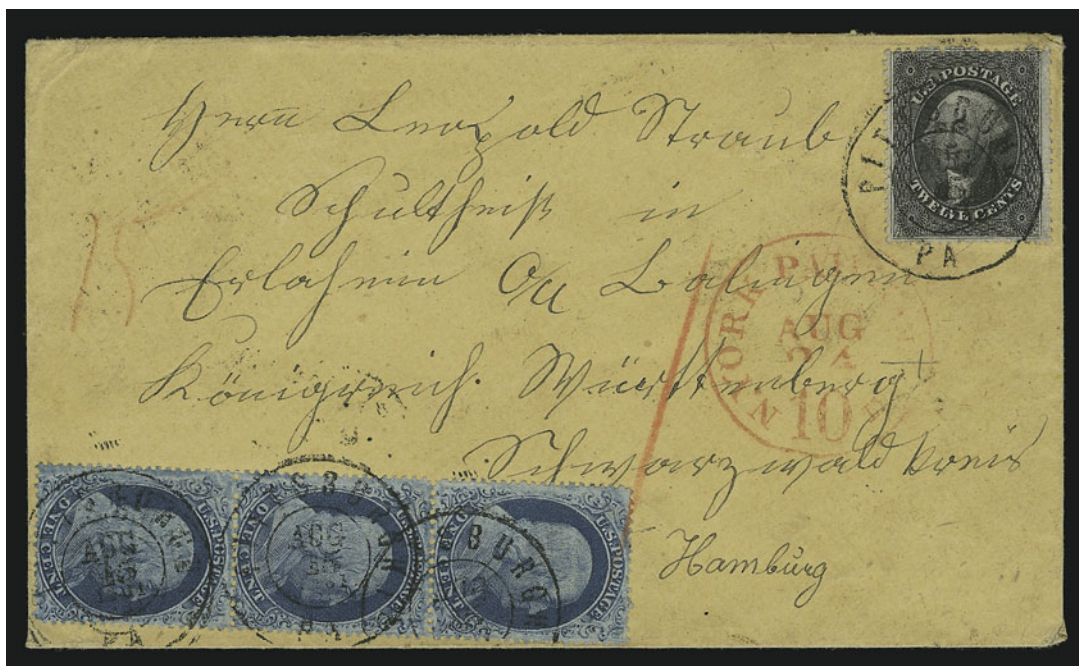 Herrn Leopold Straub
Schultheiß in
Erlaheim O/A Balingen
Königreich Württemberg
Schwarzwald Kreis
Hamburg
15
U.S. POSTAGE
TWELVE CENTS
PA
YORK PAID
AUG
24
10
U.S. POSTAGE
ONE CENT
AUG
PA
U.S. POSTAGE
ONE CENT
SBURGH
AUG
PA
U.S. POSTAGE
ONE CENT
BURGH